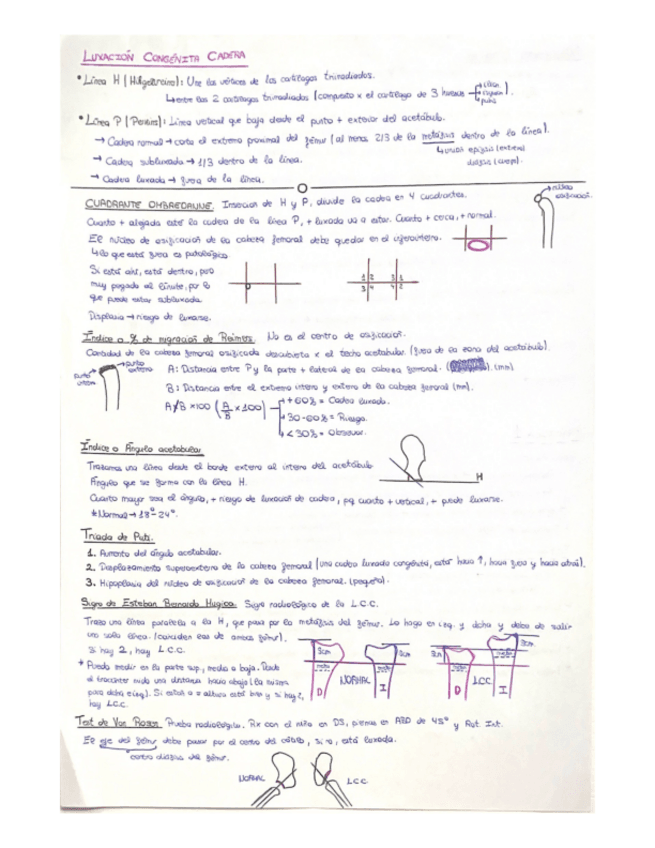 LUXACIÓN CONGÉNITA CADERA
• Línea H (Hilgenreiner): Une los vértices de los cartílagos trirradiados.
↳ entre los 2 cartílagos trirradiados (compuesto x el cartílago de 3 huesos → ilion. → isquion → pubis ).
• Línea P (Perkins): Línea vertical que baja desde el punto + exterior del acetábulo.
→ Cadera normal → corta el extremo proximal del fémur (al menos 2/3 de la metáfisis dentro de la línea).
↳ unión epífisis (extremo)
diáfisis (cuerpo).
→ Cadera subluxada → 1/3 dentro de la línea.
→ Cadera luxada → fuera de la línea.
núcleo
osificación.
CUADRANTE OMBREDANNE. Inserción de H y P, divide la cadera en 4 cuadrantes.
Cuanto + alejada esté la cadera de la línea P, + luxada va a estar. Cuanto + cerca, + normal.
El núcleo de osificación de la cabeza femoral debe quedar en el inferointerno.
↳ lo que está fuera es patológico
Si está ahí, está dentro, pero
muy pegado al límite, por lo
que puede estar subluxada.
Displasia → riesgo de luxarse.
1 2 3 1
3 4 4 2
Índice o % de migración de Reimers. No es el centro de osificación.
Cantidad de la cabeza femoral osificada descubierta x el techo acetabular. (fuera de la zona del acetábulo).
punto interno
punto externo
A: Distancia entre P y la parte + lateral de la cabeza femoral. (mm)
B: Distancia entre el extremo interno y externo de la cabeza femoral (mm).
A/B x100 (A/B x 100)
→ +60% = Cadera luxada.
→ 30-60% = Riesgo.
→ <30% = Observar.
Índice o Ángulo acetabular
Trazamos una línea desde el borde externo al interno del acetábulo.
Ángulo que se forma con la línea H.
H
Cuanto mayor sea el ángulo, + riesgo de luxación de cadera, pq cuanto + vertical, + puede luxarse.
*Normal → 18º-24º.
Triada de Putti.
1. Aumento del ángulo acetabular.
2. Desplazamiento superoexterno de la cabeza femoral (una cadera luxada congénita, estará hacia ↑, hacia fuera y hacia atrás).
3. Hipoplasia del núcleo de osificación de la cabeza femoral. (pequeño).
Signo de Esteban Bernardo Mugica. Signo radiológico de la L.C.C.
Trazo una línea paralela a la H, que pasa por la metáfisis del fémur. Lo hago en izq. y dcha y debe de salir
una sola línea. (coinciden las de ambos fémur).
Si hay 2, hay L.C.C.
* Puedo medir en la parte sup., media o baja. Desde
el trocánter mido una distancia hacia abajo (la misma
para dcha e izq). Si están a = altura está bien y si hay 2,
hay LCC.
3cm
3cm
NORMAL
D
I
3cm
3cm
LCC
D
I
Test de Von Rosen. Prueba radiológica. Rx con el niño en DS, piernas en ABD de 45º y Rot. Int.
El eje del fémur debe pasar por el centro del cótilo, si no, está luxada.
centro diáfisis del fémur.
NORMAL
L.C.C.